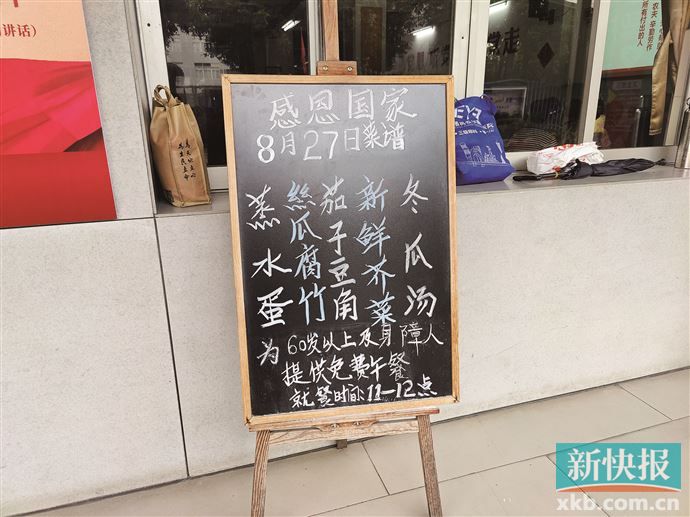 感恩国家
8月27日菜谱
蒸水蛋
絲瓜腐竹
茄子豆角
新鲜芥菜
冬瓜汤
为60岁以上及身障人
提供免费午餐
就餐时间:11—12点
讲话）
农夫 辛勤劳作
所有付出的人
新快报
xkb.com.cn